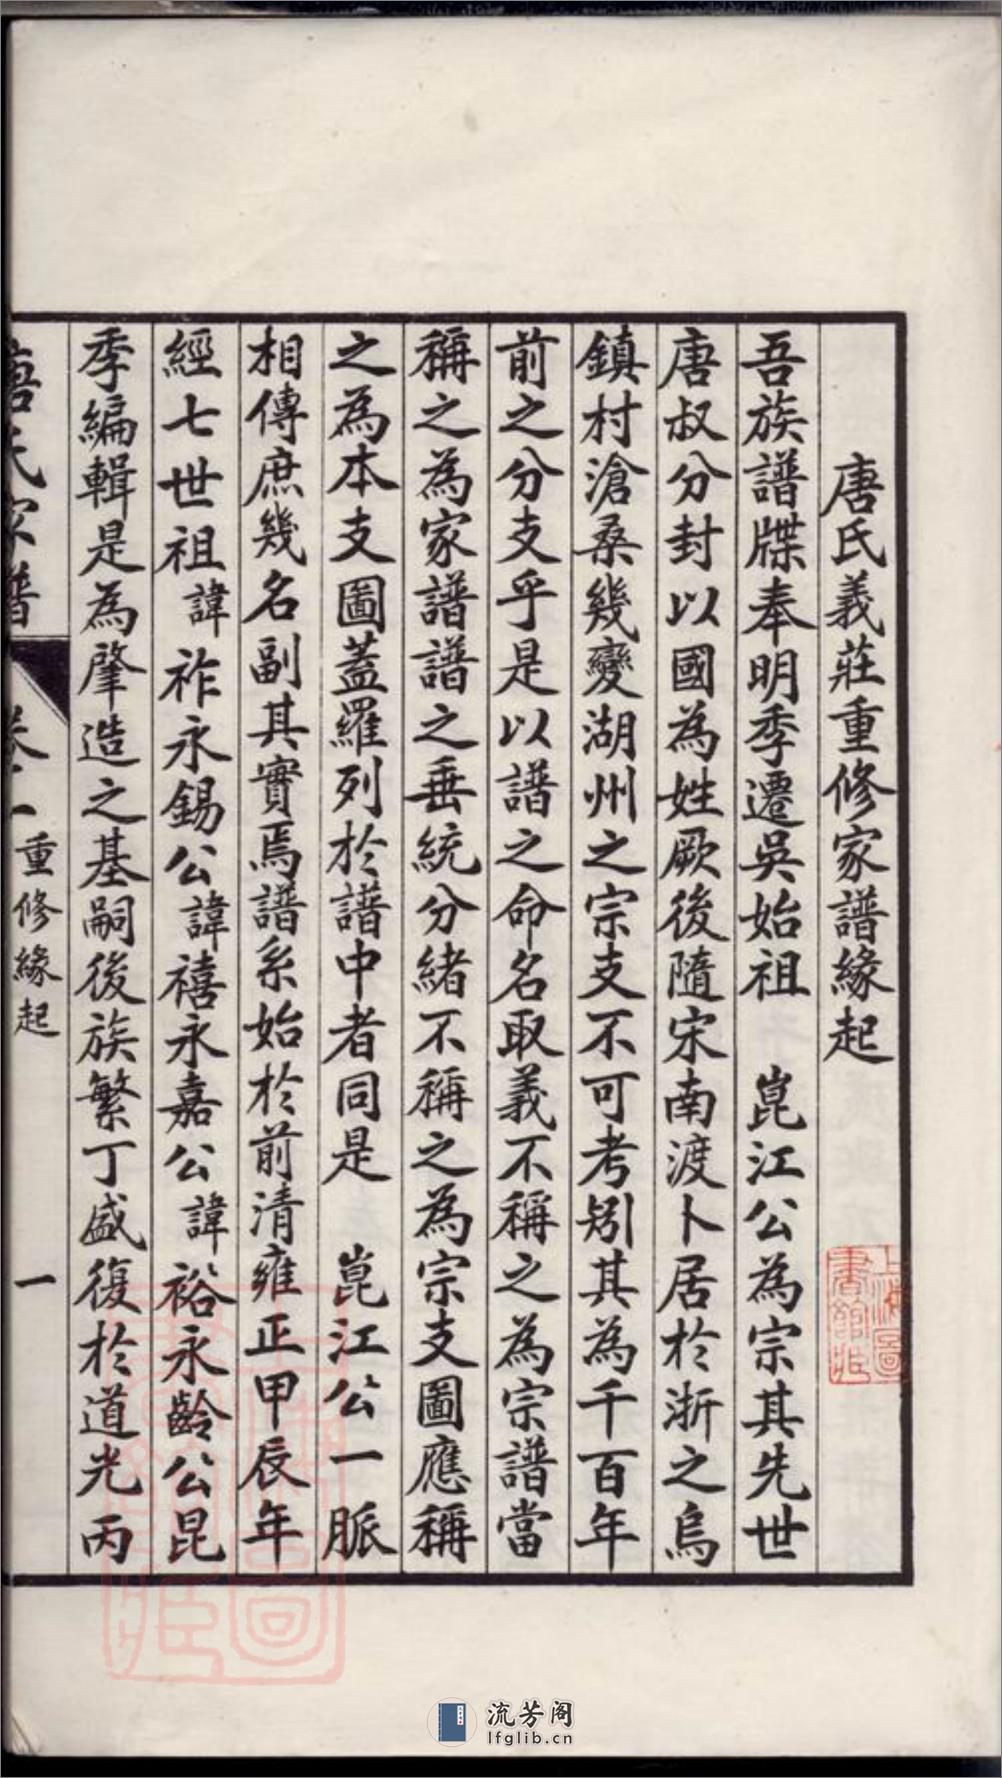 唐氏義莊重修家譜緣起
吾族譜牒奉明季遷吳始祖 崑江公為宗其先世
唐叔分封以國為姓厥後隨宋南渡卜居於浙之烏
鎮村滄桑幾變湖州之宗支不可考矧其為千百年
前之分支乎是以譜之命名取義不稱之為宗譜當
稱之為家譜譜之垂統分緒不稱之為宗支圖應稱
之為本支圖蓋羅列於譜中者同是 崑江公一脈
相傳庶幾名副其實焉譜系始於前清雍正甲辰年
經七世祖諱祚永錫公諱禧永嘉公諱裕永齡公昆
季編輯是為肇造之基嗣後族繁丁盛復於道光丙
唐氏家譜 卷一 重修緣起 一
上海圖書館藏
流芳阁
lfglib.cn